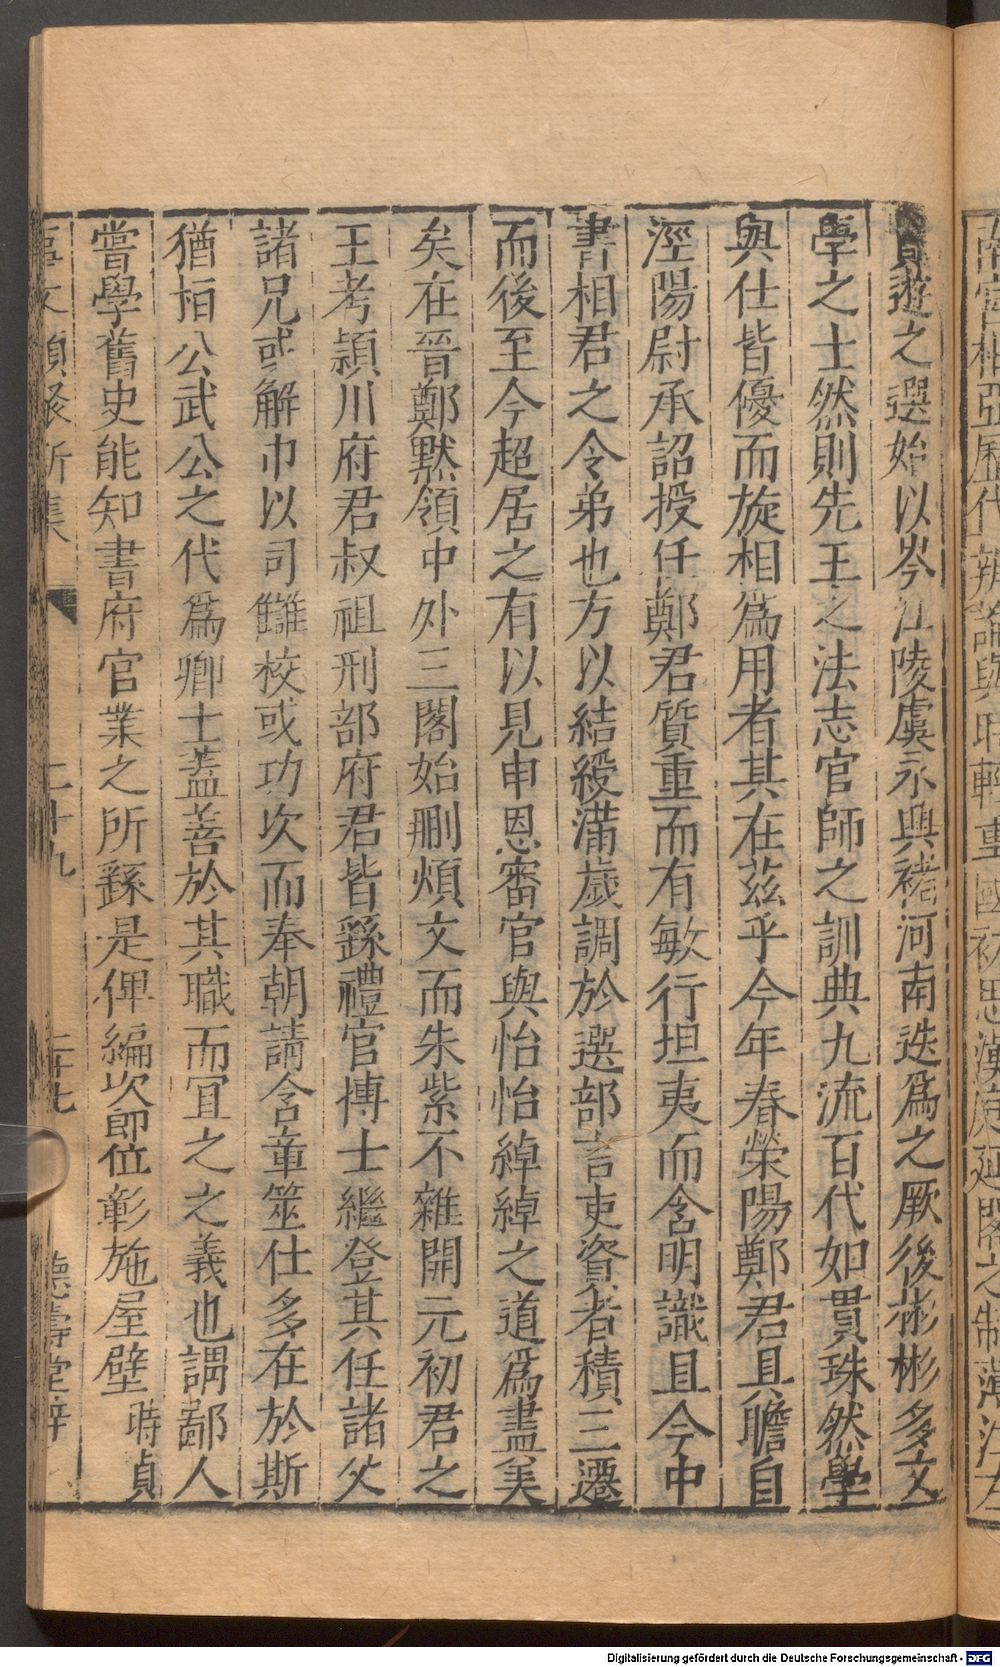 南宮相亞歷代辨論與時輕重國初思漢庭延閣之制薄江左
賓遊之選始以岑江陵虞永興褚河南迭爲之厥後彬彬多文
學之士然則先王之法志官師之訓典九流百代如貫珠然學
與仕皆優而旋相爲用者其在茲乎今年春滎陽鄭君具瞻自
涇陽尉承詔授任鄭君質重而有敏行坦夷而含明識且今中
書相君之令弟也方以結綬滿歲調於選部言吏資者積三遷
而後至今超居之有以見申恩審官與怡怡綽綽之道爲盡美
矣在晉鄭默領中外三閣始刪煩文而朱紫不雜開元初君之
王考潁川府君叔祖刑部府君皆繇禮官博士繼登其任諸父
諸兄或解巾以司讎校或功次而奉朝請含章筮仕多在於斯
猶桓公武公之代爲卿士蓋善於其職而冝之之義也謂鄙人
嘗學舊史能知書府官業之所繇是俾編次郎位彰施屋壁 時貞
事文類聚新集 二十九 二十七 德壽堂梓
Digitalisierung gefördert durch die Deutsche Forschungsgemeinschaft - DFG